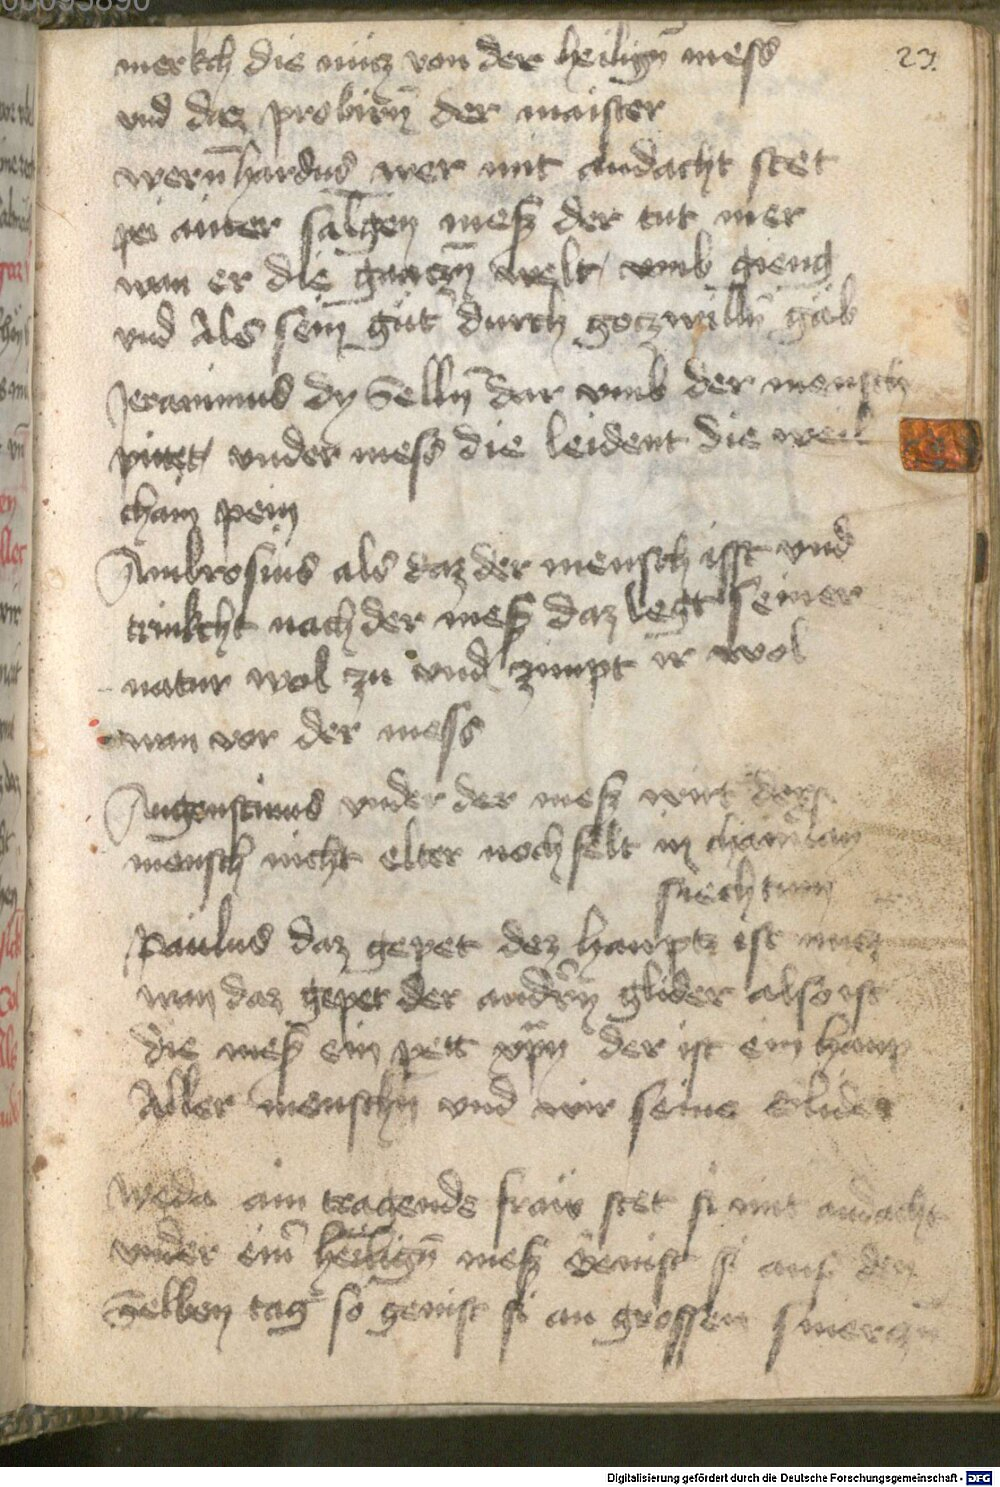 23.
merkch die nücz von der heilign̄ mess
vnd daz probirn̄ der maister
wern̄hardus wer mit andacht stet
pei ainer salgen mess der tut mer
wan er die gnaczn̄ welt vmb gieng
vnd Als sein gut durch gocz willn̄ gäb
Jeranimus dy Selln̄ dar vmb der mensch
pittet vnder mess die leident die weil
chain pein
Ambrosius als daz der mensch isst vnd
trinkcht nach der mess daz legt seiner
natur wol zu vnd zimpt ir wol
wan vor der mess
Augenstinus vnder der mess wirt der
mensch nicht elter noch felt in chain
siechtum
Paulus daz gepet dez haupts ist nucz
wan daz gepet der andern̄ glider also ist
die mess ein pett xp̄n der ist ein haup
Aller menschn̄ vnd wir seine Glider
Weda ain tragende fraw stet si mit andacht
vnder ein̄ heilign̄ mess Genist si auf den
Selben tag so genist si an grossen smerczn̄
Digitalisierung gefördert durch die Deutsche Forschungsgemeinschaft - DFG